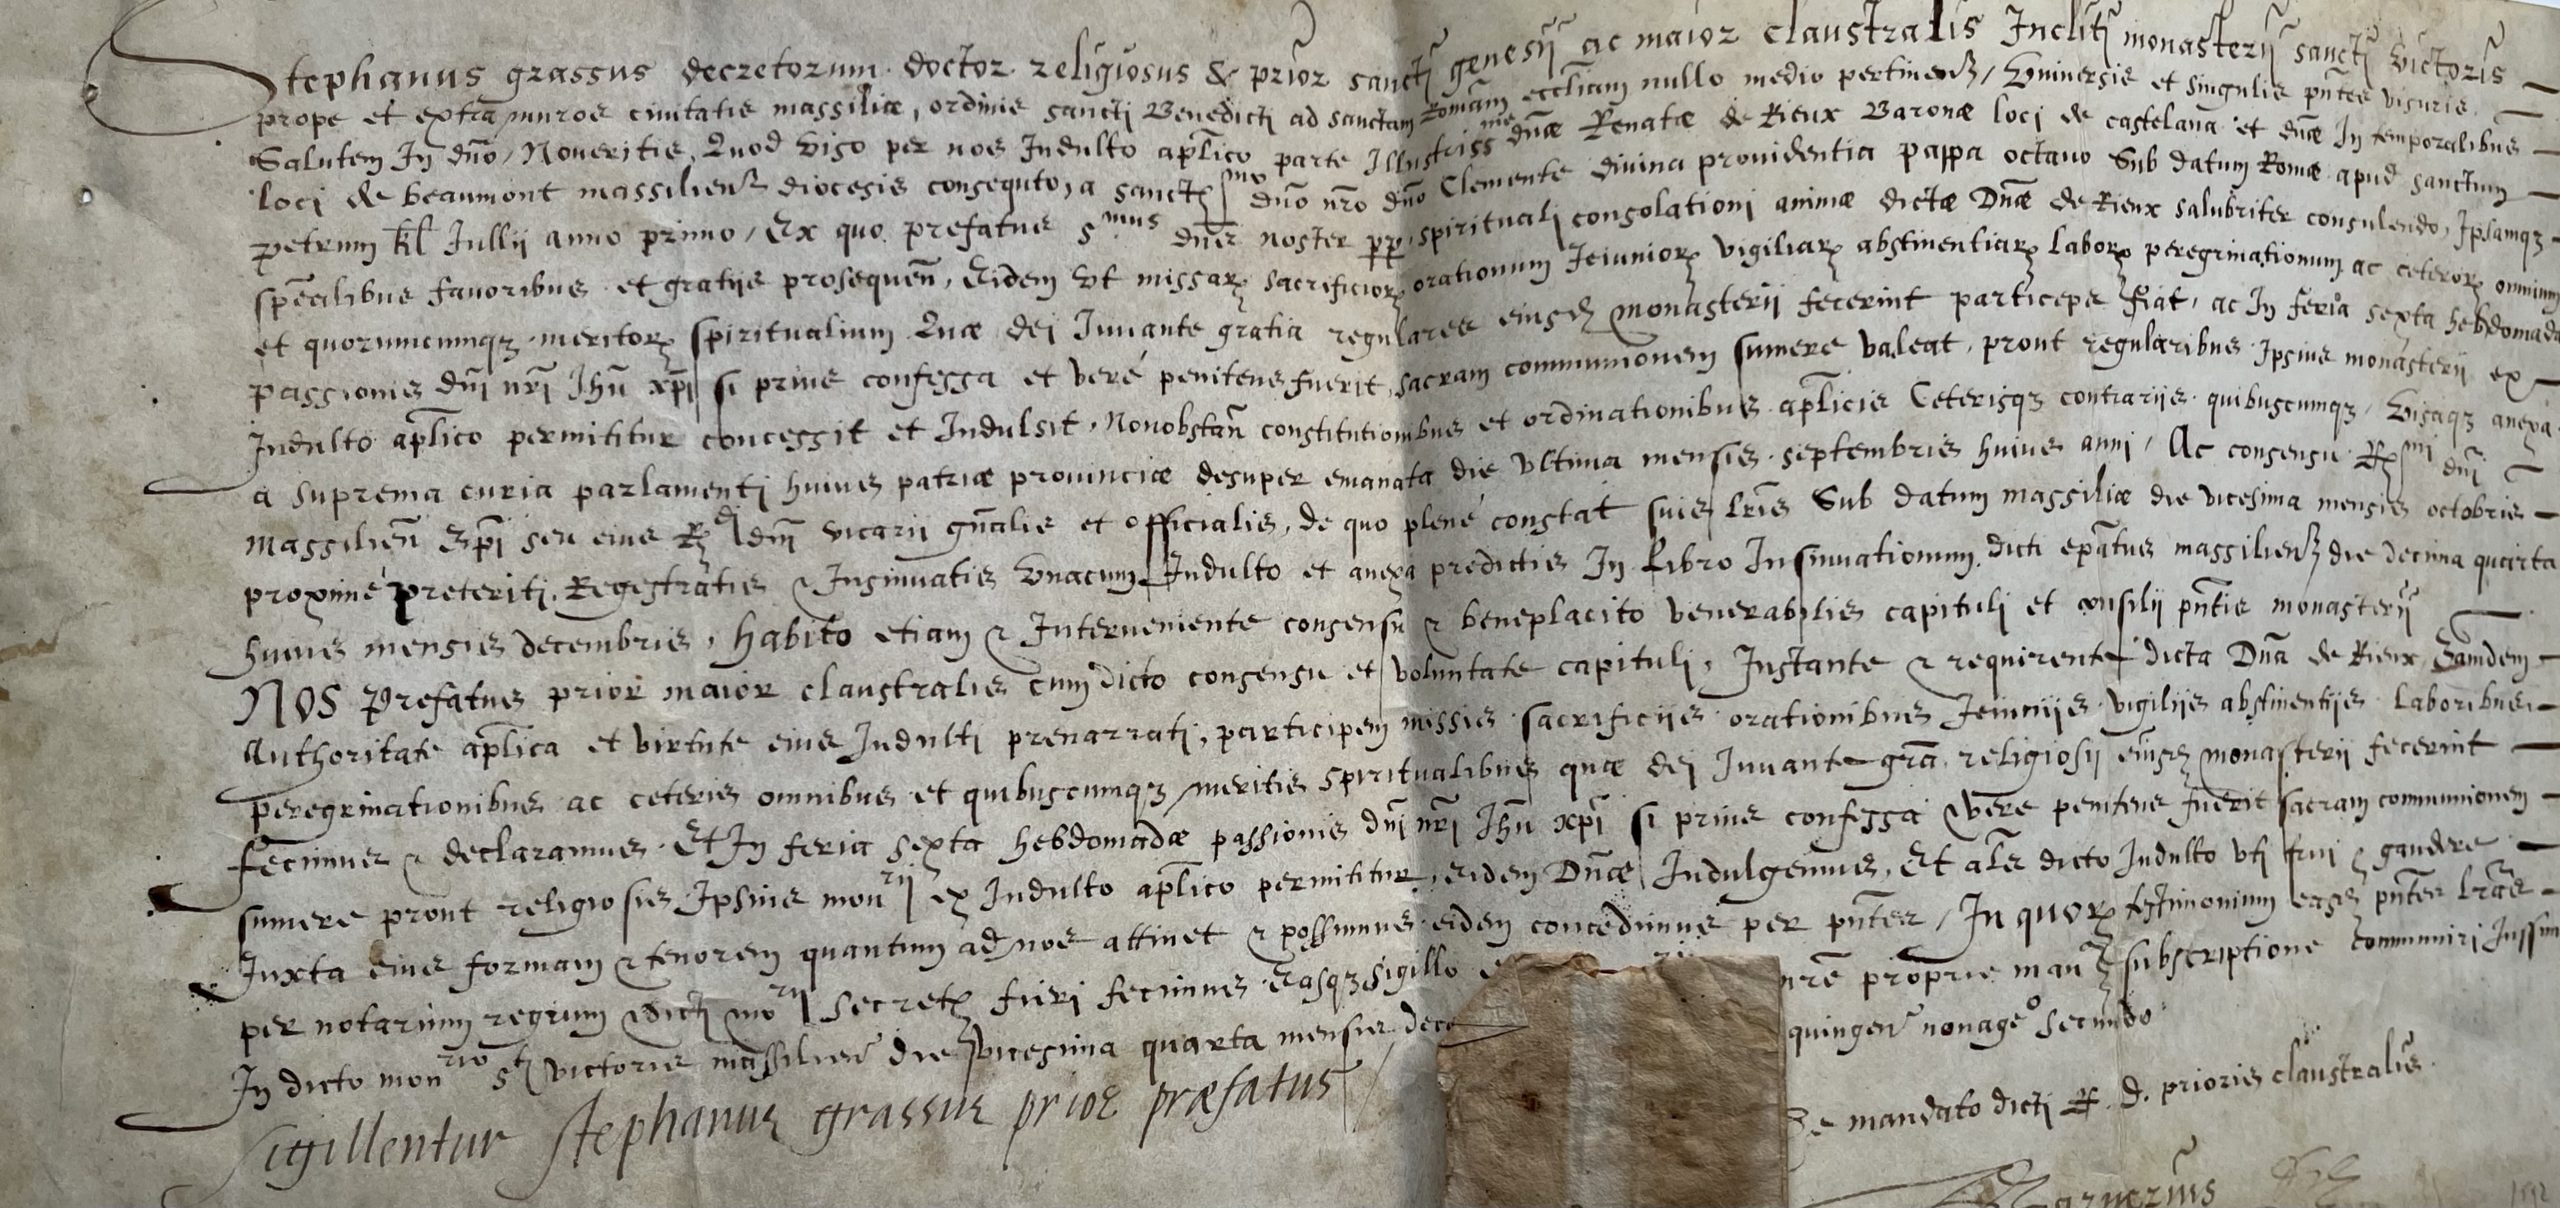 Stephanus grassus decretorum doctor religiosus & prior sancti genesij ac maior claustralis Incliti monasterij sancti victoris
prope et extra muros ciuitatis massiliæ, ordinis sancti Benedicti ad sanctam Romam eccliam nullo medio pertinen, Vniuersis et singulis pntes visuris
Salutem In dno, Noueritis, Quod viso per nos Indulto aplico parte Illustriss me dnæ Renatæ de Rieux Baronæ loci de castelana et dnæ In temporalibus
loci de beaumont massilien diocesis consequto, a sanct mo dno nro dno Clemente diuina prouidentia pappa octauo Sub datum Romæ apud sanctum
petrum kl Jullij anno primo, Ex quo prefatus s mus dns noster pp, spirituali consolationi animæ dictæ Dnæ de Rieux salubriter consulendo, Ipsamqz
specialibus fauoribus et gratijs prosequen, Eidem Vt missar sacrificior orationum Ieiunior vigiliar abstinentiar labor peregrinationum ac ceteror omnium
et quorumcumqz meritor spiritualium Quæ dei Iuuante gratia regulares eiusd monasterij fecerint particeps fiat, ac In feria sexta hebdomadæ
passionis dni nri Jhu xpi si prius confessa et veré penitens fuerit, sacram communionem sumere valeat, prout regularibus Ipsius monasterij ex
Indulto aplico permittitur concessit et Indulsit, Nonobstan constitutionibus et ordinationibus aplicis Ceterisqz contrarijs quibuscumqz, Visaqz anexa
a suprema curia parlamenti huius patriæ prouinciæ desuper emanata die vltima mensis septembris huius anni, Ac consensu R mi dni
massilien Epi seu eius R di dni vicarij gnalis et officialis, de quo plené constat suis lris Sub datum massiliæ die vicesima mensis octobris
proximé preteriti, Regestratis & Insinuatis Vnacum Indulto et anexa predictis In Libro Insinuationum dicti epatus massilien die decima quarta
huius mensis decembris, Habito etiam & Interueniente consensu & beneplacito venerabilis capituli et consilij pntis monasterij
NOS Prefatus prior maior claustralis cum dicto consensu et voluntate capituli, Instante & requirente dicta Dna de Rieux, Eamdem
Authoritate aplica et virtute eius Indulti prenarrati, participem missis sacrificijs orationibus Ieiunijs vigilijs abstinentijs laboribus
peregrinationibus ac ceteris omnibus et quibuscumqz meritis spiritualibus quæ dei Iuuante gra religiosij eiusd monasterij fecerint
fecimus & declaramus. Et In feria sexta hebdomadæ passionis dni nri Jhu xpi si prius confessa & vere penitens fuerit sacram communionem
sumere prout religiosis Ipsius mon rij ex Indulto aplico permittitur, eidem Dnæ Indulgemus, Et als dicto Indulto vti frui & gaudere
Iuxta eius formam & tenorem quantum ad nos attinet & possumus eidem concedimus per pntes, In quor testimonium easd pntes lras
per notarium regium & dicti mo rij secret fieri fecimus Easqz sigillo nre proprie man subscriptione communiri Iussim
In dicto mon rio sti victoris massilien die vicesima quarta mensis dece quingen nonage o secundo
sigillentur stephanus grassus prior præfatus
De mandato dicti R. D. prioris claustralis